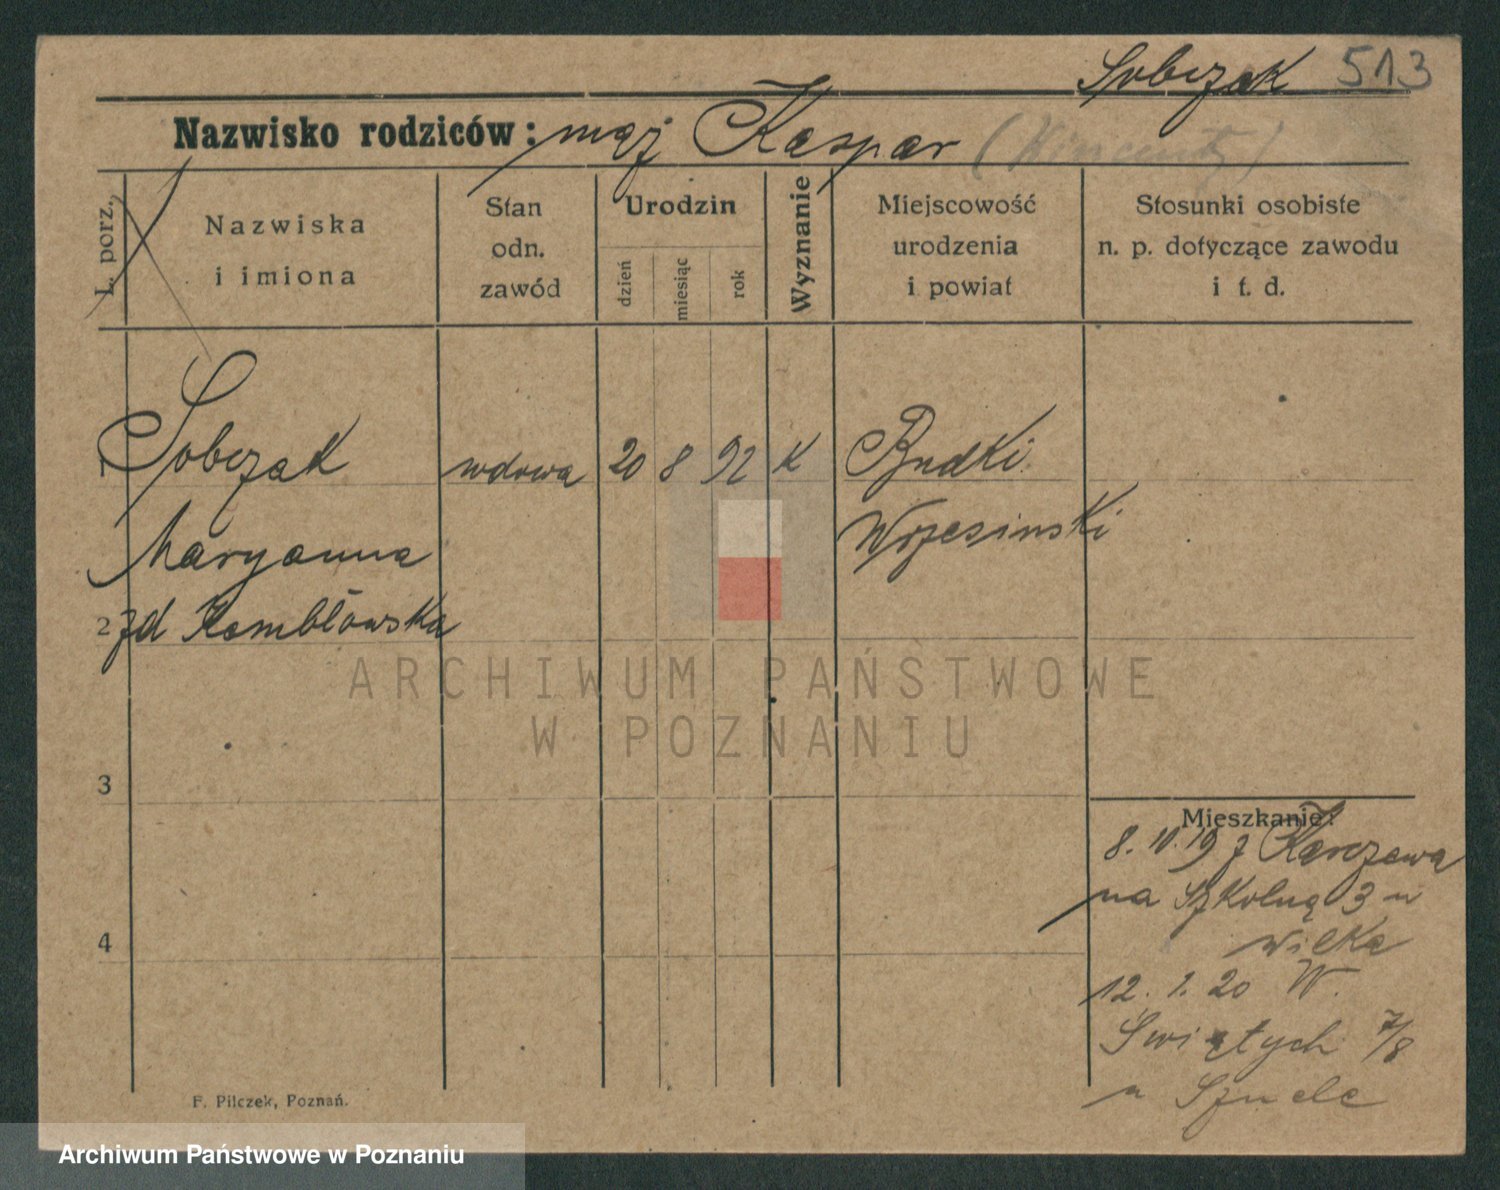 Sobczak 513
Nazwisko rodziców: mąż Kaspar
L. porz.
Nazwiska
i imiona
Stan
odn.
zawód
Urodzin
dzień
miesiąc
rok
Wyznanie
Miejscowość
urodzenia
i powiat
Stosunki osobiste
n. p. dotyczące zawodu
i t. d.
1 Sobczak wdowa 20 8 92 K Budki
Maryanna Wrzesinski
2 zd Kembłowska
3
4
Mieszkanie:
8. 10. 19 z Karczewa
na Szkolną 3 u
Wilka
12. 1. 20 W.
Świętych 7/8
u
F. Pilczek, Poznań.
ARCHIWUM PAŃSTWOWE
W POZNANIU
Archiwum Państwowe w Poznaniu